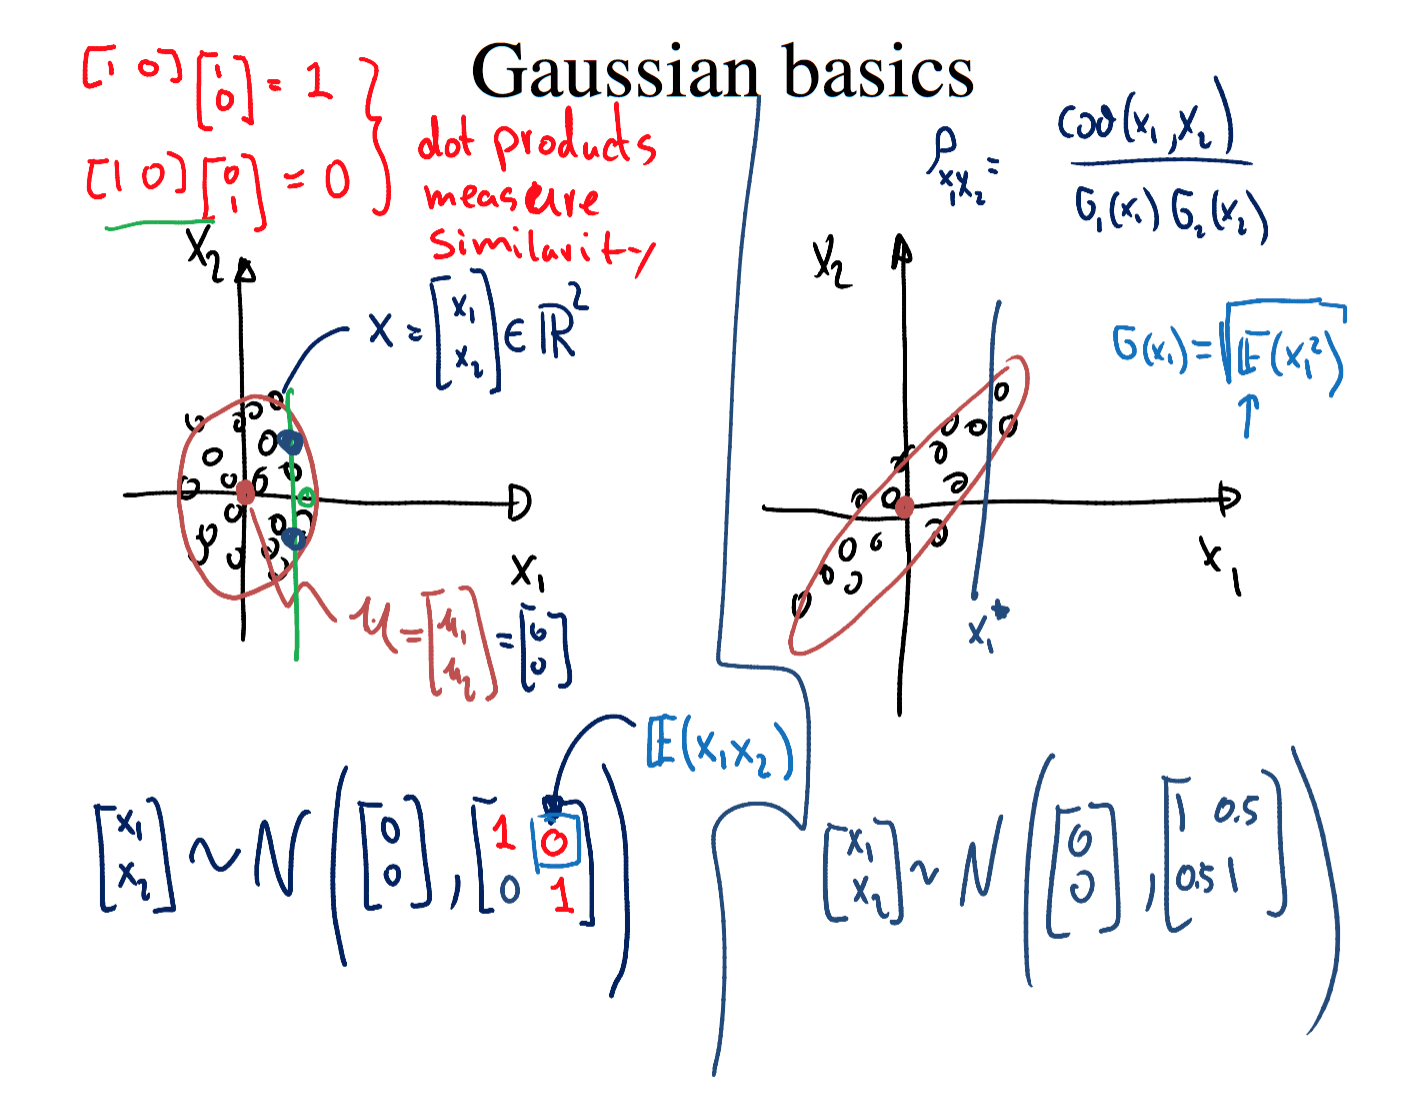 Gaussian basics
[1 0] [1 0] = 1
[1 0] [0 1] = 0
dot products
measure
similarity
X₂
X = [x₁ x₂] ∈ ℝ²
X₁
μ = [μ₁ μ₂] = [0 0]
𝔼(x₁x₂)
[x₁ x₂] ~ N([0 0], [1 0 0 1])
ρx₁x₂ = cov(x₁, x₂) / σ₁(x₁) σ₂(x₂)
X₂
σ(x₁) = √𝔼(x₁²)
x₁
x₁*
[x₁ x₂] ~ N([0 0], [1 0.5 0.5 1])